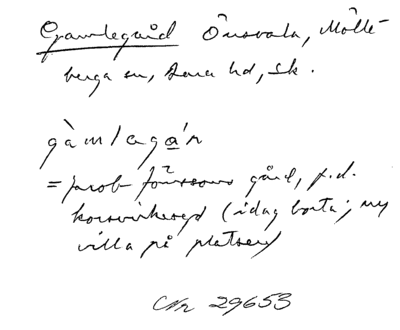 Gamlegård Önsvala, Mölle-
berga sn, Bara hd, Sk.
gàmlagán
= Jacob Jönssons gård, f.d.
korsvirkesgd (idag borta; ny
villa på platsen)
Nr 29653